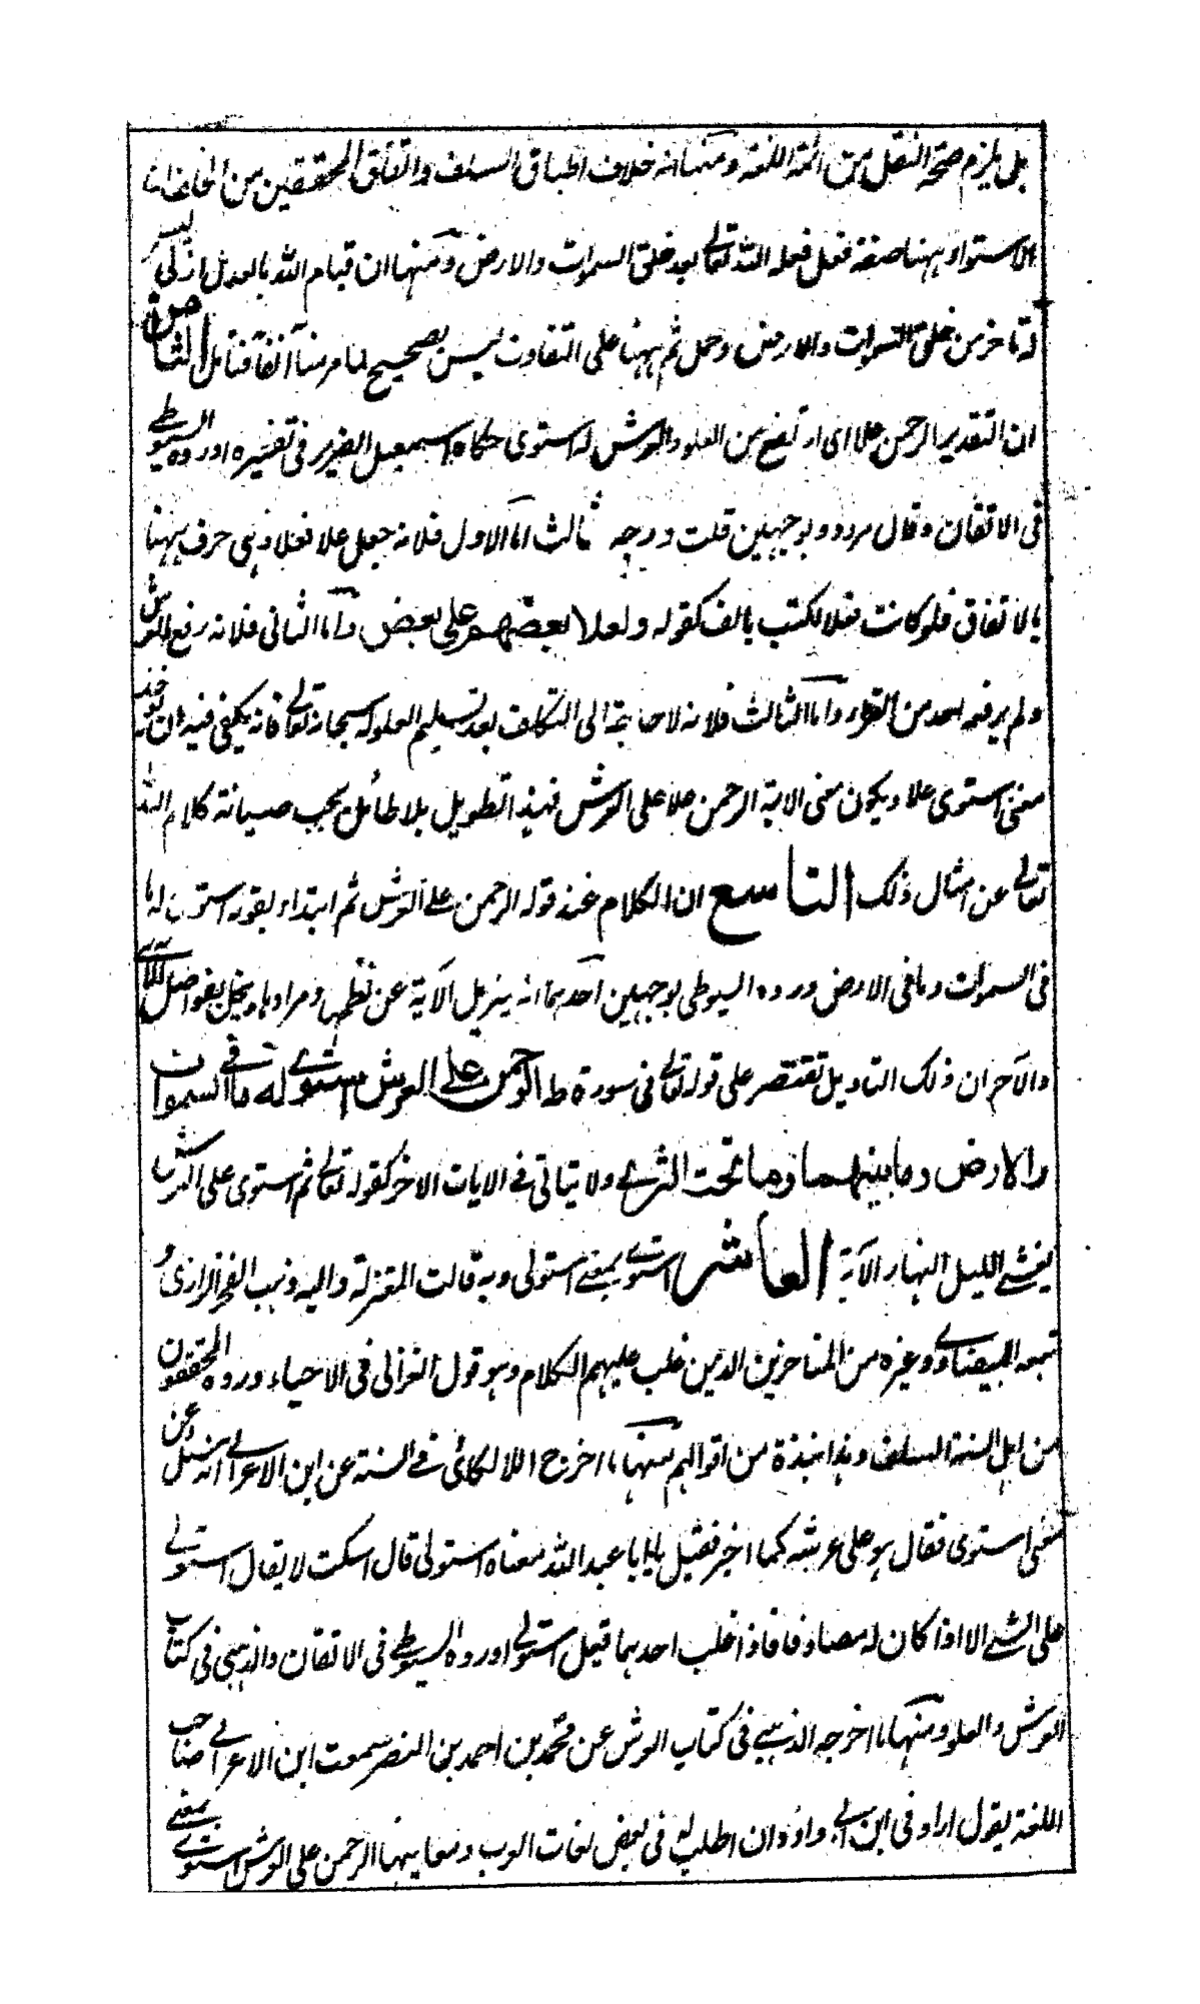 بل يلزم صحة النقل من ائمة اللغة ومنها انه خلاف اطباق السلف واتفاق المحققين من الخلف اما
الاستواء ههنا صفة فعل فعله الله تعالى بعد خلق السموات والارض ومنها ان قيام الله بالعدل ازلى ليس
له تاخر من خلق السموات والارض وحمل ثم ههنا على التفاوت ليس بصحيح لما مر منا آنفا فتامل الثامن
ان التقدير الرحمن علا اى ارتفع من العلو والعرش له استوى حكاه اسمعيل الضرير فى تفسيره اورده السيوطے
فى الاتقان وقال مردود بوجهين قلت ووجه ثالث اما الاول فلانه جعل علا فعلا وهى حرف ههنا
بالاتفاق فلو كانت فعلا لكتب بالف كقوله ولعلا بعضهم على بعض واما الثانى فلانه رفع العرش
ولم يرفعه احد من القراء واما الثالث فلانه لا حاجة الى التكلف بعد تسليم العلو له سبحانه تعالى فانه يكفى فيه ان يوخذ
معنى استوى علا ويكون معنى الاية الرحمن علا على العرش فهذا تطويل بلا طائل يجب صيانة كلام الله
تعالى عن امثال ذلك التاسع ان الكلام عند قوله الرحمن على العرش ثم ابتداء بقوله استوى له ما
فى السموات وما فى الارض ورده السيوطى بوجهين احدهما انه يزيل الآية عن نظمها ومرادها ويخل بفواصل الآے
والآخر ان ذلك التاويل تقتصر على قوله تعالى فى سورة طه الرحمن على العرش استوے له ما فے السموات
والارض وما بينهما وما تحت الثرے ولا يتاتى فے الايات الاخر كقوله تعالى ثم استوى على العرش
يغشے الليل النهار الآية العاشر استوے بمعنے استولى وبه قالت المعتزلة واليه ذهب الفخر الرازى و
تبعه البيضاوے وغيره من المتاخرين الذين غلب عليهم الكلام وهو قول الغزالى فى الاحياء ورده المحققون
من اهل السنة السلف وهذا نبذة من اقوالهم منها ما اخرج اللالكائى فے السنة عن ابن الاعرابے انه سئل عن
معنى استوى فقال هو على عرشه كما اخبر فقيل يا ابا عبد الله معناه استولى قال اسكت لا يقال استولے
على الشے الا اذا كان له مضاد فاذا غلب احدهما قيل استولے اورده السيوطے فى الاتقان والذهبى فى كتاب
العرش والعلو ومنها ما اخرجه الذهبے فى كتاب العرش عن محمد بن احمد بن النضر سمعت ابن الاعرابے صاحب
اللغة يقول ارادنى ابن ابى داود ان اطلب له فى بعض لغات العرب ومعانيها الرحمن على العرش استوے بمعنے